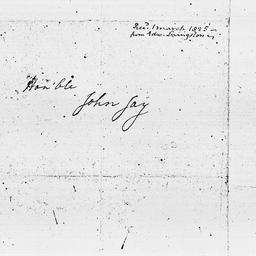 Rec.d 1 March 1825 –
from Edw. Livingston
Hon'ble
John Jay